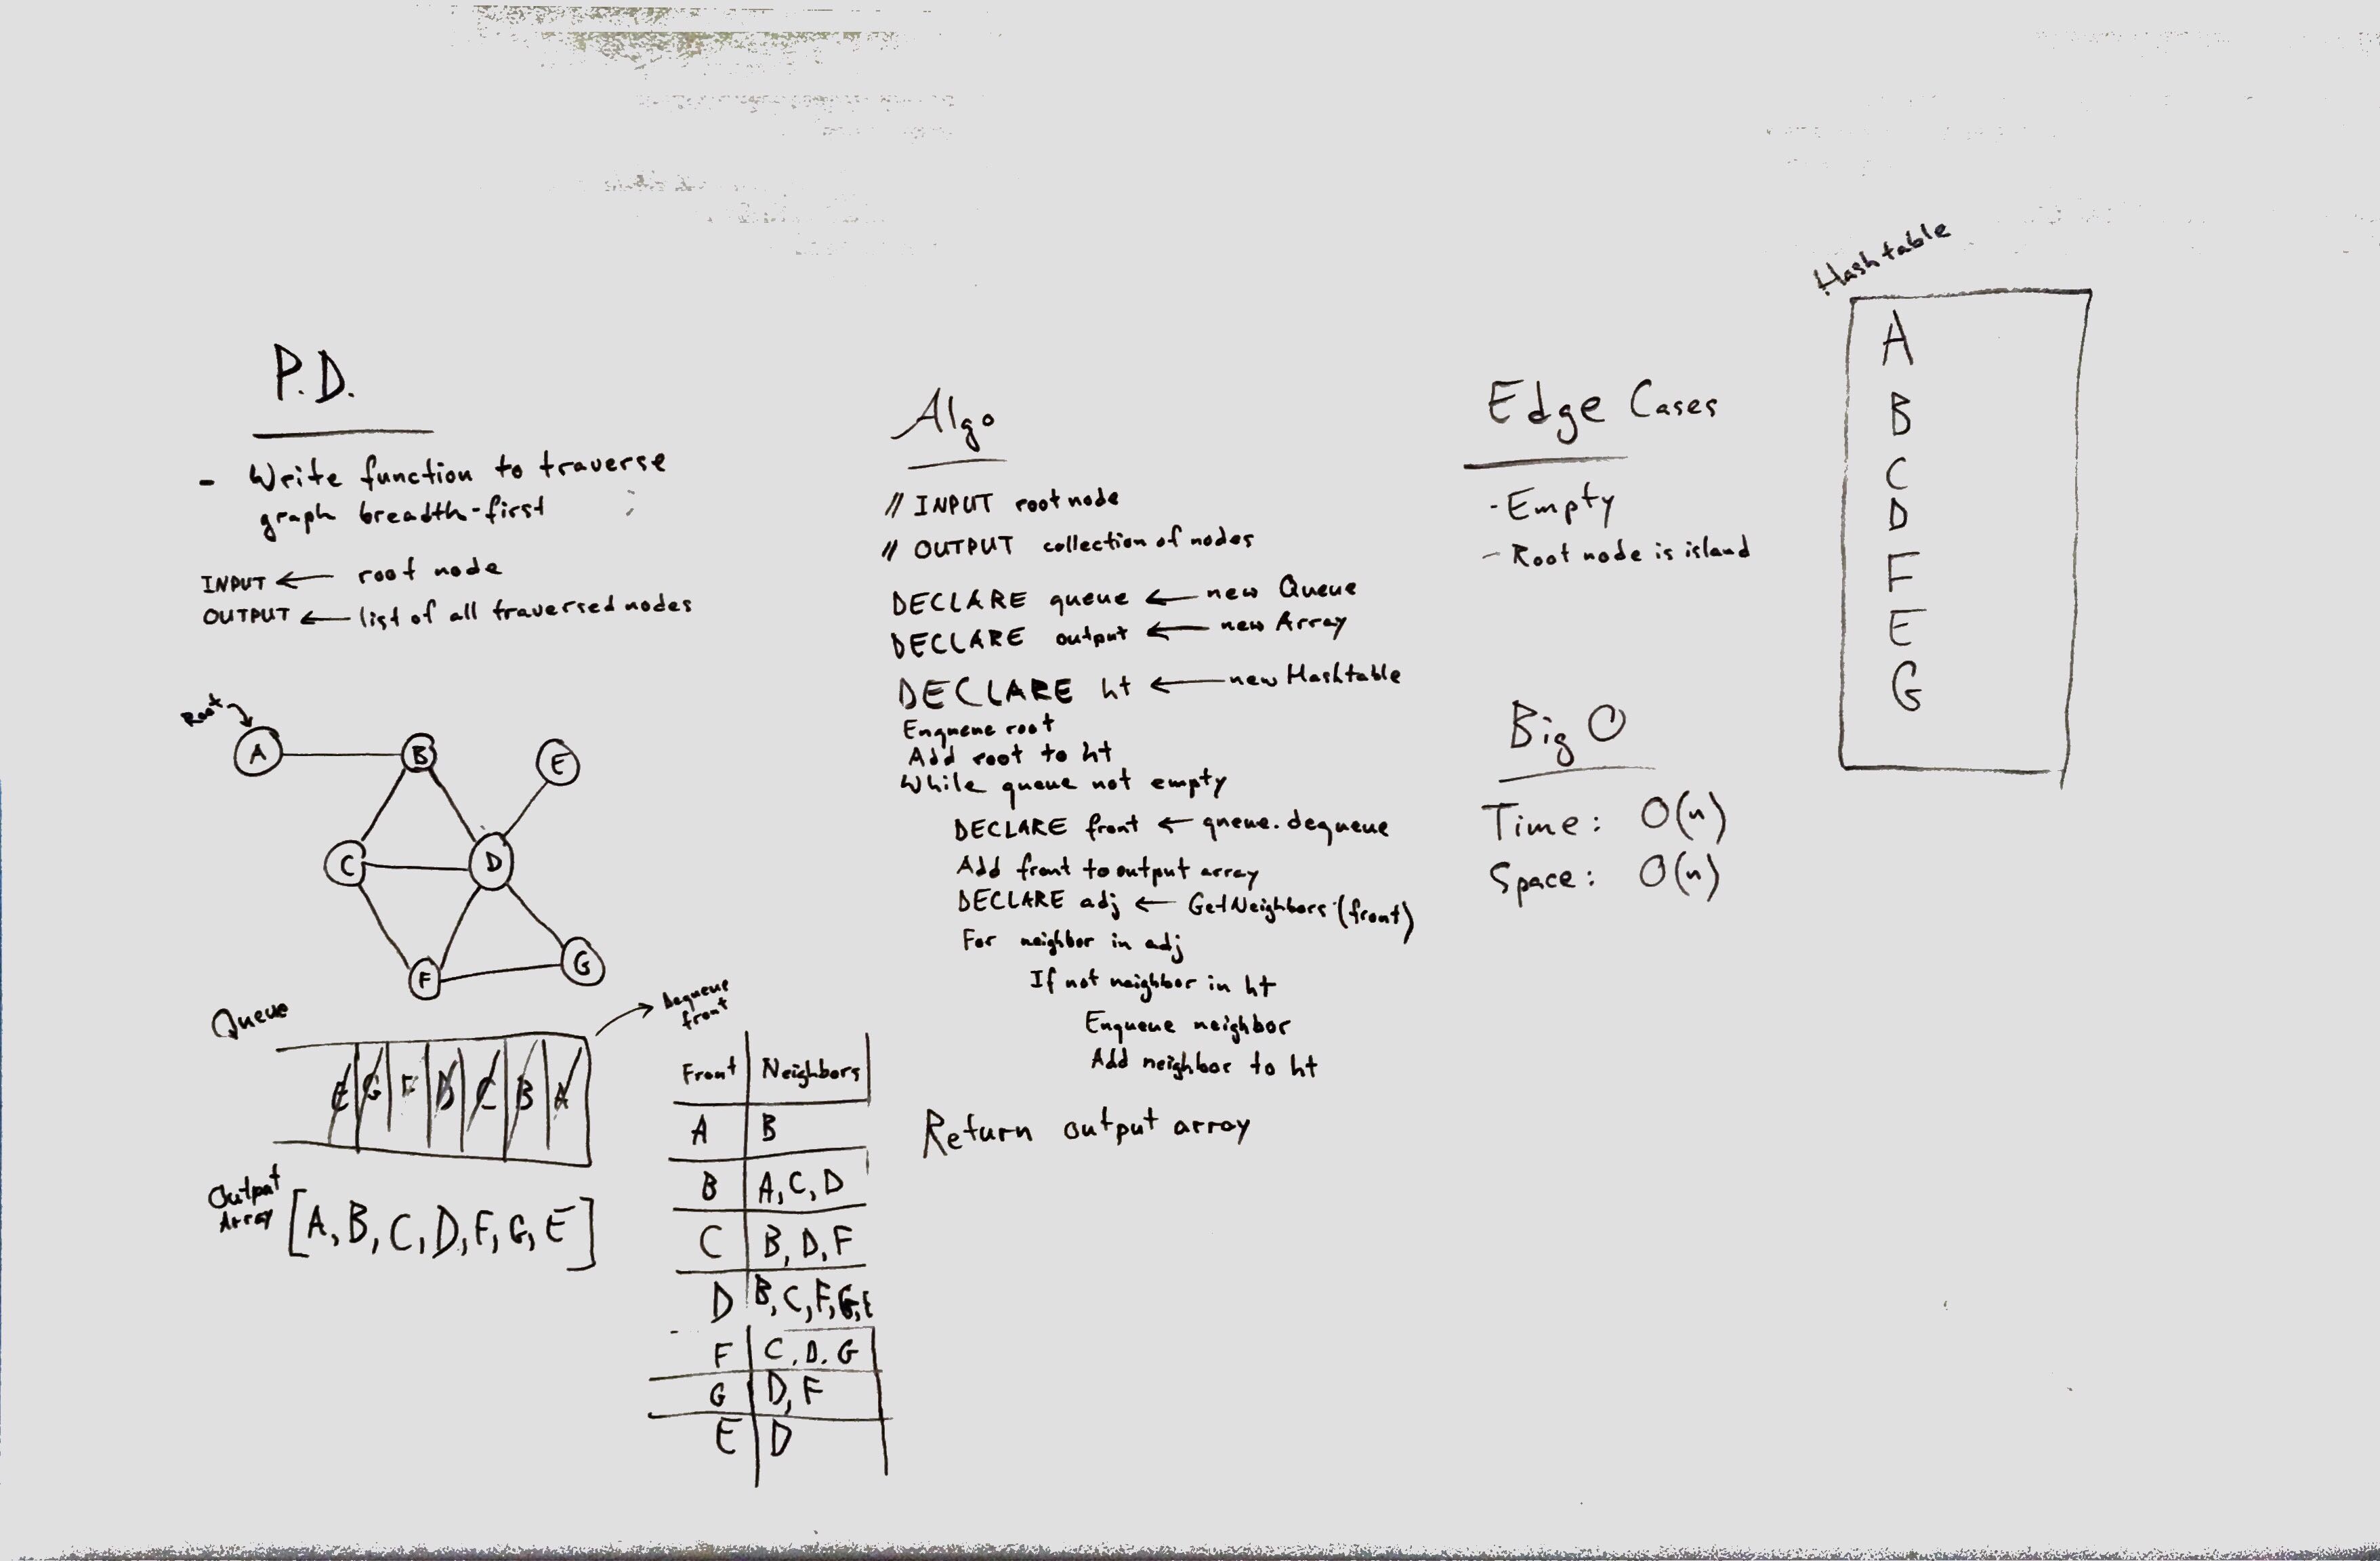 P.D.
- Write function to traverse
graph breadth-first
INPUT ← root node
OUTPUT ← list of all traversed nodes
Root
A
B
E
C
D
F
G
Queue
Dequeue
front
E G F D C B A
Output
Array
[A, B, C, D, F, G, E]
Front Neighbors
A B
B A, C, D
C B, D, F
D B, C, F, G, E
F C, D, G
G D, F
E D
Algo
// INPUT root node
// OUTPUT collection of nodes
DECLARE queue ← new Queue
DECLARE output ← new Array
DECLARE ht ← new Hashtable
Enqueue root
Add root to ht
While queue not empty
DECLARE front ← queue.dequeue
Add front to output array
DECLARE adj ← GetNeighbors(front)
For neighbor in adj
If not neighbor in ht
Enqueue neighbor
Add neighbor to ht
Return output array
Edge Cases
- Empty
- Root node is island
Big O
Time: O(n)
Space: O(n)
Hashtable
A
B
C
D
F
E
G